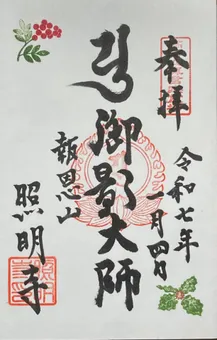 奉拝
令和七年
一月四日
御影大師
照明寺